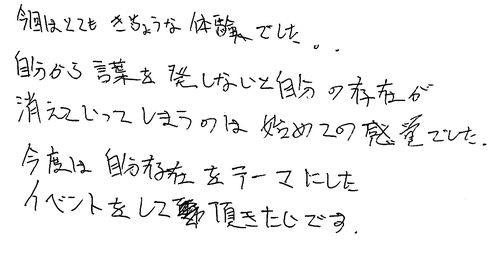 今回はとても きちょうな 体験でした。.
自分から 言葉を 発しないと自分 の存在が
消えていってしまうのは 始めての感覚でした.
今度は 自分存在 をテーマにした
イベントをして 頂きたいです.